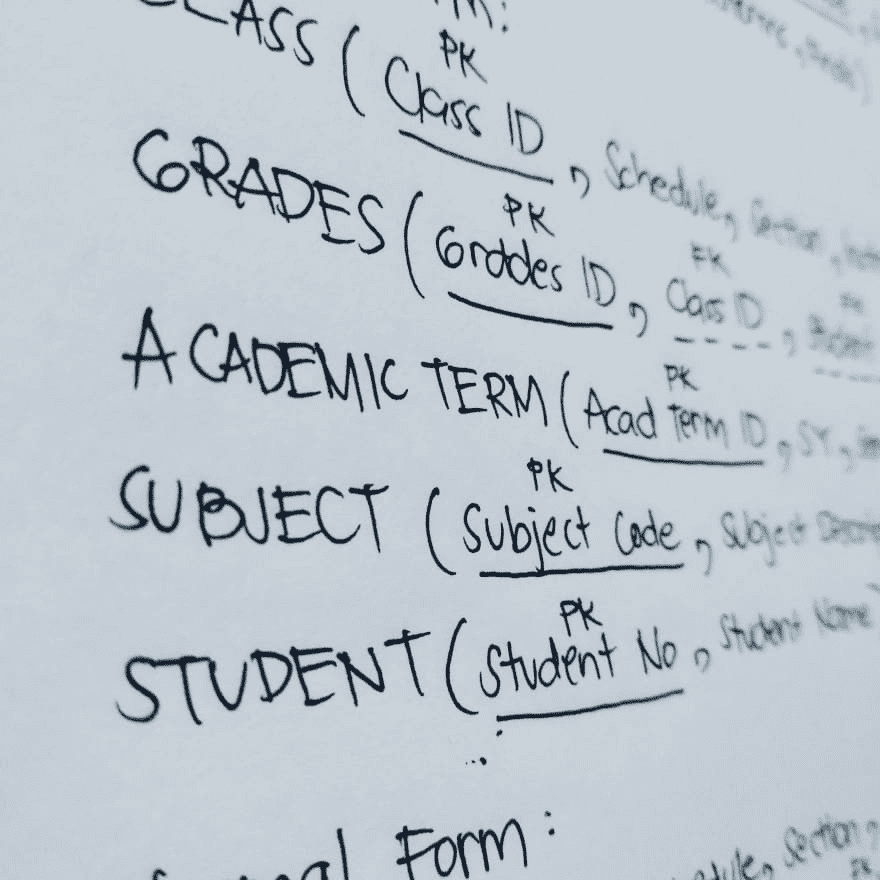 CLASS ( PK Class ID, Schedule, Section,
GRADES ( PK Grddes ID, FK Class ID, FK Student
ACADEMIC TERM ( PK Acad Term ID, SY,
SUBJECT ( PK Subject Code, Subject
STUDENT ( PK Student No, Student Name
Form:
Section,